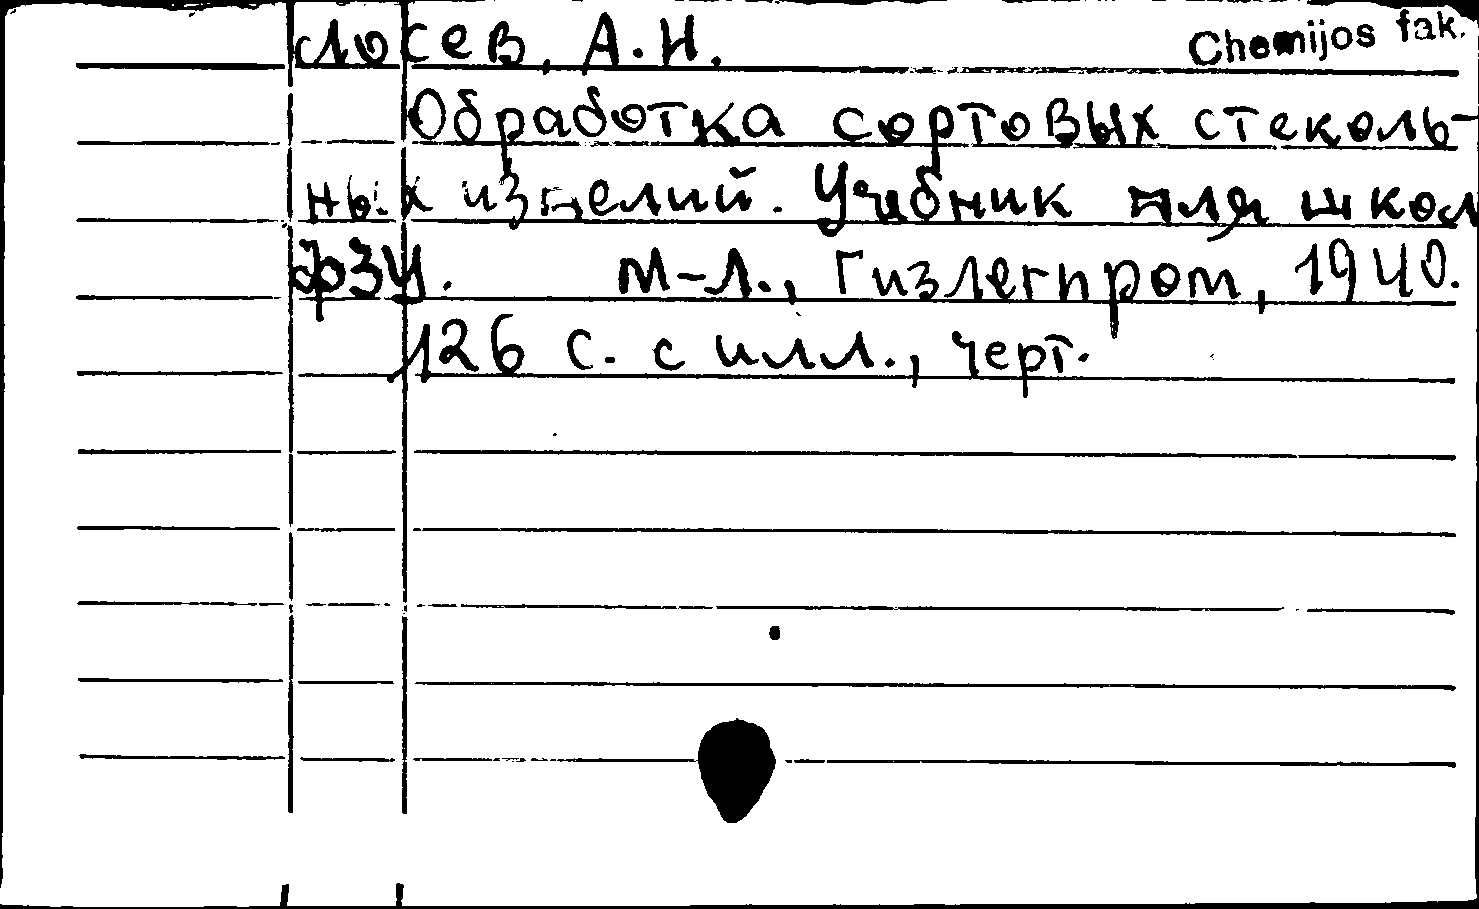 Лосев, А.Н.
Chemijos fak.
Обработка сортовых стеколь-
ных изделий. Учебник для школ
ФЗУ. М-Л., Гизлегпром, 1940.
126 с. с илл., черт.